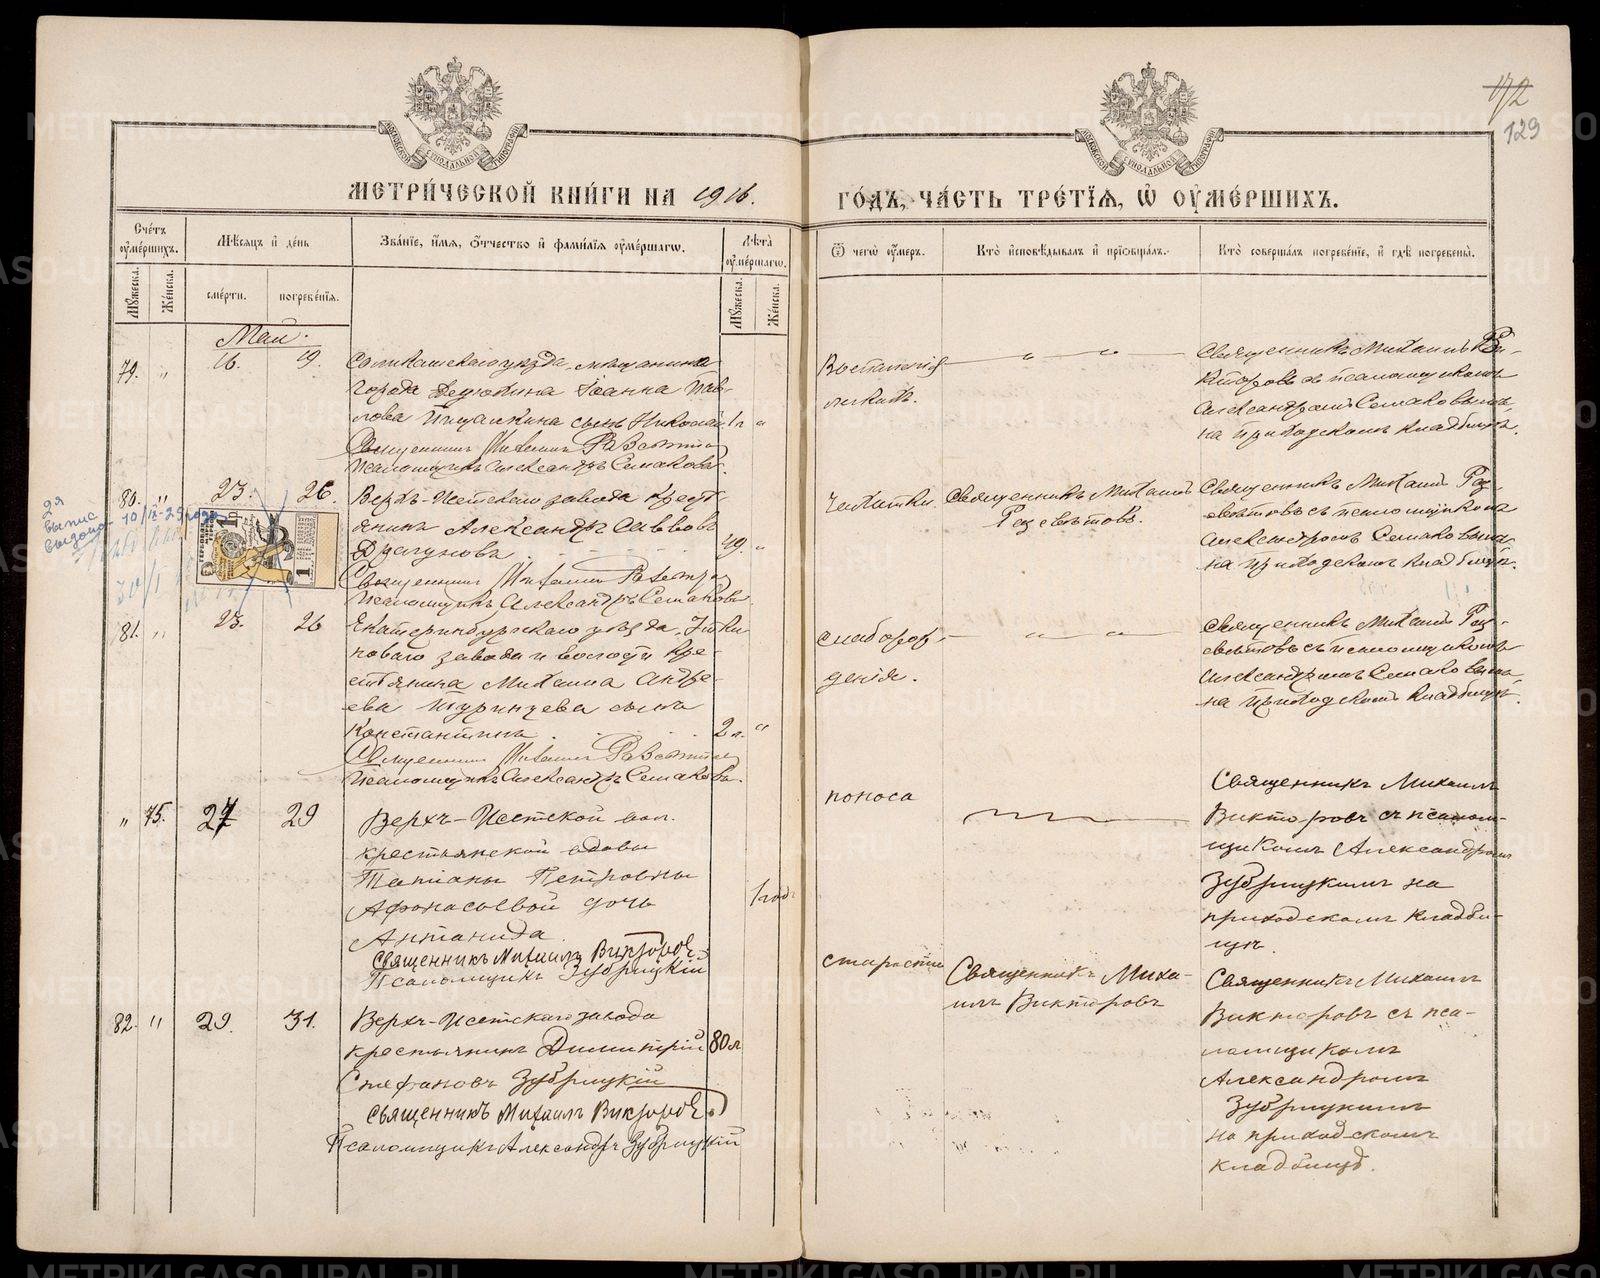 172
129
МОСКОВСКОЙ СУНОДАЛЬНОЙ ТИПОГРАФІИ
МОСКОВСКОЙ СУНОДАЛЬНОЙ ТИПОГРАФІИ
МЕТРИ́ЧЕСКОЙ КНИ́ГИ НА 1916.
ГО́ДЪ, ЧА́СТЬ ТРЕ́ТЇѦ, Ѽ ОУ҆МЕ́РШИХЪ.
Сче́тъ оу҆ме́ршихъ.
Мꙋ́жеска.
Же́нска.
Мѣ́сѧцъ и҆ де́нь
сме́рти.
погребе́нїѧ.
Зва́нїе, и҆́мѧ, ѻ҆́тчество и҆ фами́лїѧ оу҆ме́ршагѡ.
Лѣ́та оу҆ме́ршагѡ.
Мꙋ́жеска.
Же́нска.
Ѿ чегѡ̀ оу҆́меръ.
Кто̀ и҆сповѣ́дывалъ и҆ прїѡбща́лъ.
Кто̀ соверша́лъ погребе́нїе, и҆ гдѣ̀ погребены̀.
Май.
79. " 16. 19.
Соликамскаго уѣзда, мѣщанина
города Дедюхина Іоанна Пав-
лова сынъ Николай 1 г "
Священникъ Михаилъ
Псаломщикъ Александръ Семаковъ.
Воспаленія
легкихъ.
" "
Священникъ Михаилъ
съ псаломщикомъ
Александромъ Семаковымъ,
на приходскомъ кладбищѣ.
80. " 23. 26.
Верхъ-Исетскаго завода крест-
янинъ Александръ Саввовъ
Драгуновъ 49. "
Священникъ Михаилъ
Псаломщикъ Александръ Семаковъ.
Чахотки.
Священникъ Михаилъ
Разсвѣтовъ.
Священникъ Михаилъ Раз-
свѣтовъ съ псаломщикомъ
Александромъ Семаковымъ
на приходскомъ кладбищѣ.
2я
выпис
выдана 10/IX-29 года
81. " 23. 26
Екатеринбургскаго уѣзда, Уткин-
скаго завода и волости кре-
стьянина Михаила Андре-
ева Туринцева сынъ
Константинъ 2 г. "
Священникъ Михаилъ
Псаломщикъ Александръ Семаковъ.
слаборож-
денія.
" "
Священникъ Михаилъ Раз-
свѣтовъ съ псаломщикомъ
Александромъ Семаковымъ,
на приходскомъ кладбищѣ.
" 75. 27 29
Верхъ-Исетской вол.
крестьянской вдовы
Татіаны Петровны
Афонасьевой дочь
Антонида 1 годъ
Священникъ Михаилъ Викторовъ
Псаломщикъ Зубрицкій
поноса
Священникъ Михаилъ
Викторовъ съ псалом-
щикомъ Александромъ
Зубрицкимъ на
приходскомъ кладби-
щѣ.
82. " 29. 31.
Верхъ-Исетскаго завода
крестьянинъ Димитрій 80 л
Стефановъ Зубрицкій
Священникъ Михаилъ Викторовъ
Псаломщикъ Александръ Зубрицкій
старости
Священникъ Миха-
илъ Викторовъ
Священникъ Михаилъ
Викторовъ съ пса-
ломщикомъ
Александромъ
Зубрицкимъ
на приходскомъ
кладбищѣ.
METRIKI.GASO-URAL.RU